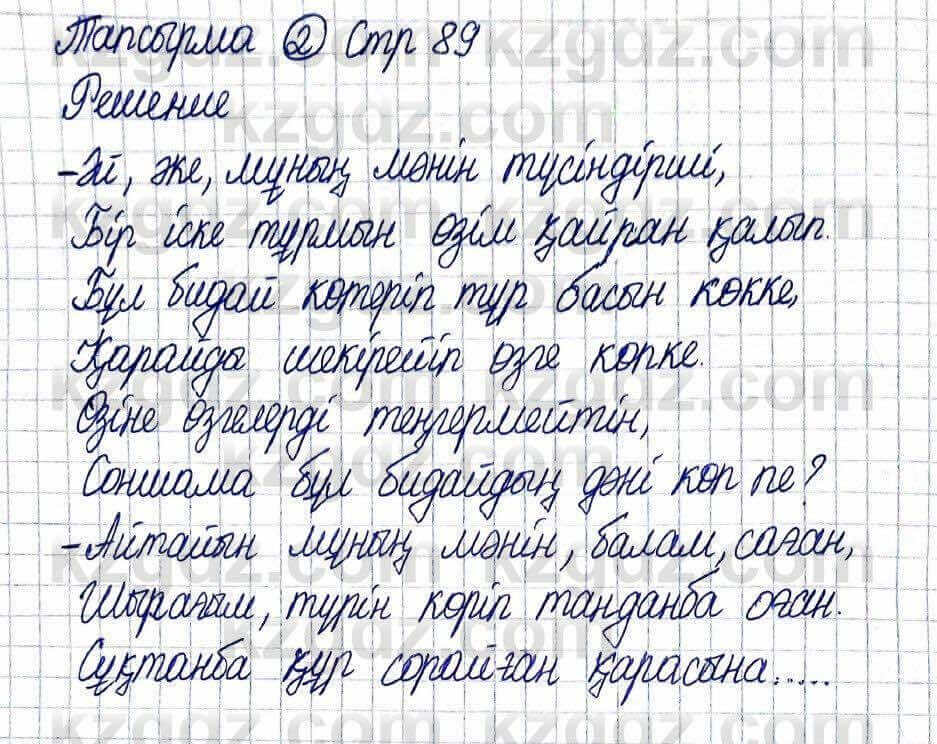 Тапсырма 2 Стр 89
Решение
-Әй, әке, мұның мәнін түсіндірші,
Бір іске тұрмын өзім қайран қалып.
Бұл бидай көтеріп тұр басын көкке,
Қарайды шекірейіп өзге көпке.
Өзіне өзгелерді теңгермейтін,
Соншама бұл бидайдың дәні көп пе?
-Айтайын мұның мәнін, балам, саған,
Шырағым, түрін көріп танданба оған.
Сұқтанба құр сорайған қарасына.....